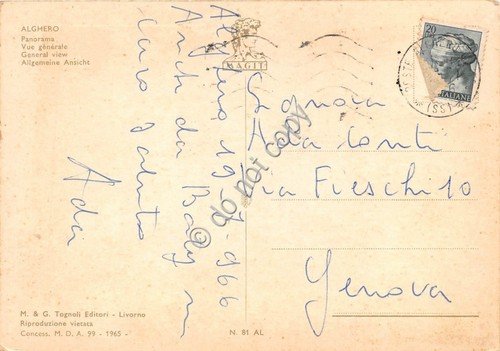 ALGHERO
Panorama
Vue générale
General view
Allgemeine Ansicht
MAGIT
20
ITALIANE
(SS)
Alghero 19-7-966
Anche da
caro saluto
Ada
Signora
Ada Conti
Via Fieschi 10
Genova
© do not copy
M. & G. Tognoli Editori - Livorno
Riproduzione vietata
Concess. M. D. A. 99 - 1965 -
N. 81 AL